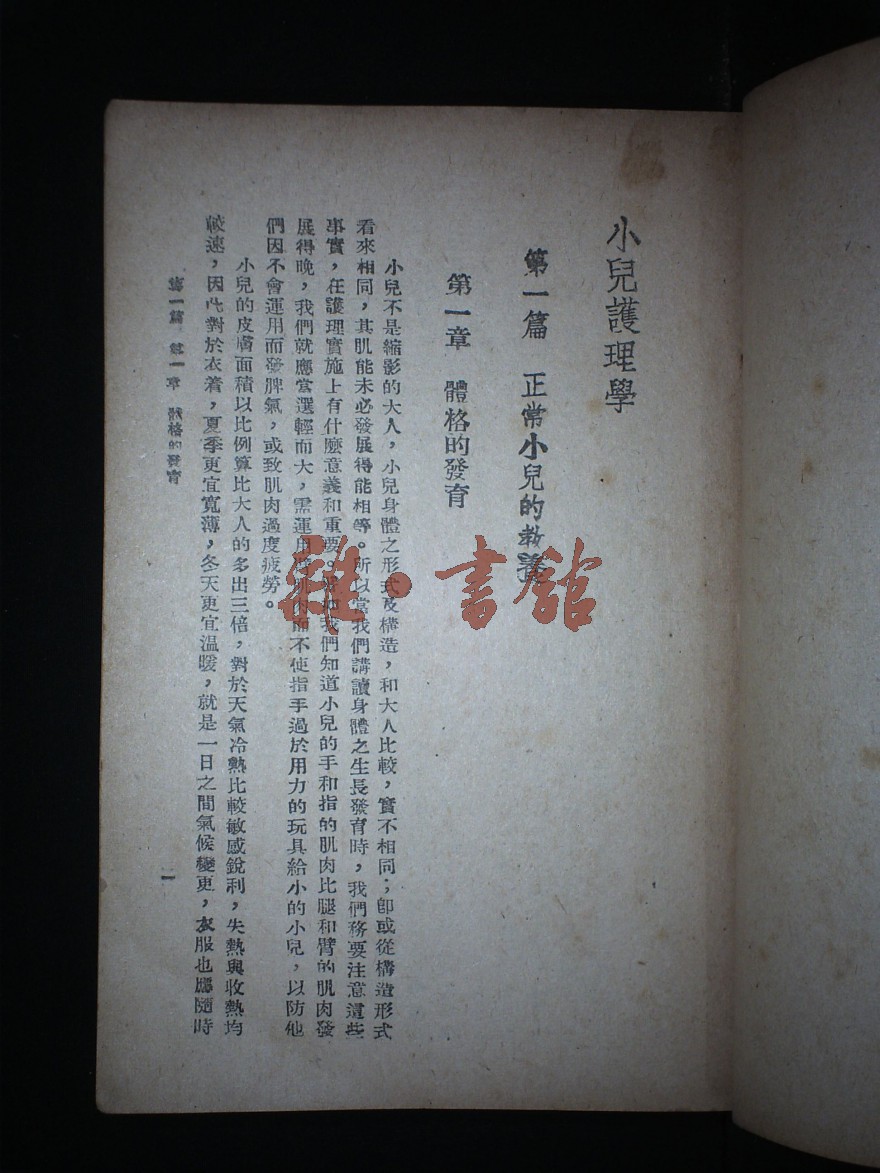 小兒護理學
第一篇 正常小兒的教養
第一章 體格的發育
小兒不是縮影的大人，小兒身體之形式及構造，和大人比較，實不相同；卽或從構造形式
看來相同，其肌能未必發展得能相等。所以當我們講讀身體之生長發育時，我們務要注意這些
事實，在護理實施上有什麼意義和重要。我們知道小兒的手和指的肌肉比腿和臂的肌肉發
展得晚，我們就應當選輕而大，需運用臂肌肉而不使指手過於用力的玩具給小的小兒，以防他
們因不會運用而發脾氣，或致肌肉過度疲勞。
小兒的皮膚面積以比例算比大人的多出三倍，對於天氣冷熱比較敏感銳利，失熱與收熱均
較速，因此對於衣着，夏季更宜寬薄，冬天更宜溫暖，就是一日之間氣候變更，衣服也應隨時
第一篇 第一章 體格的發育
一
雜·書館